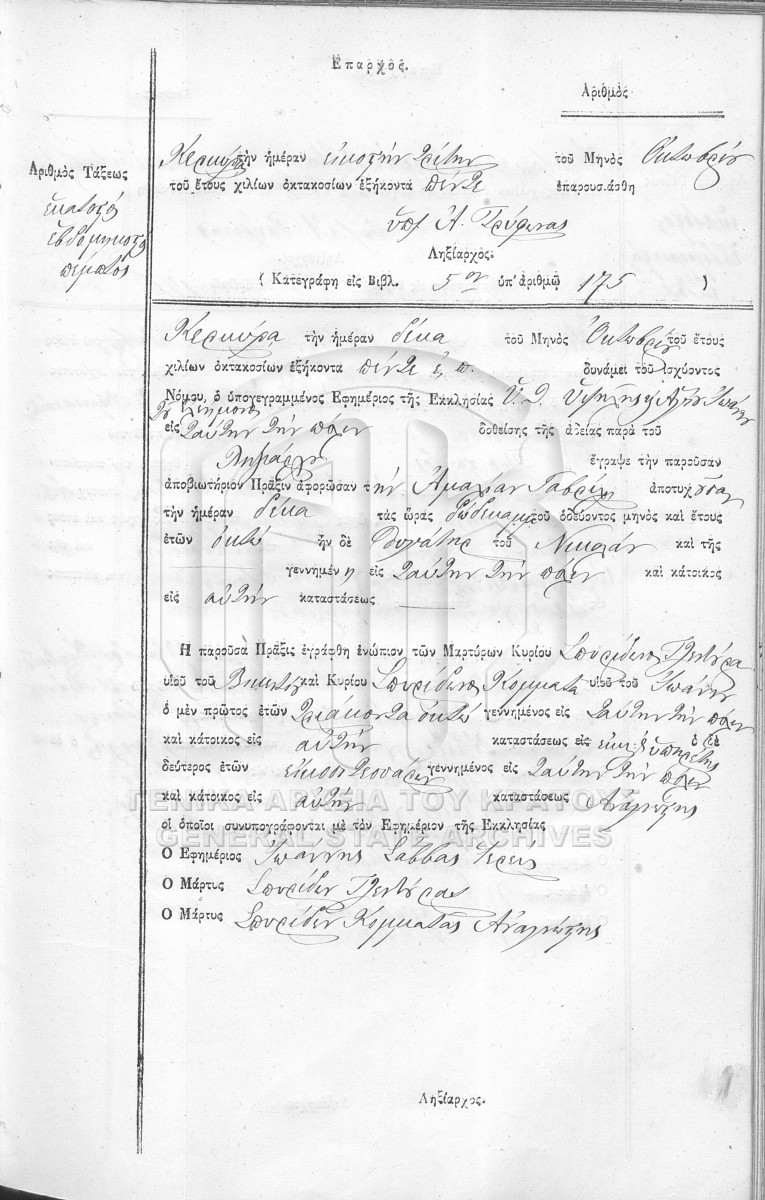 Επαρχος.
Αριθμὸς
Αριθμὸς Τάξεως
ἑκατοστὸς
ἑβδομηκοστὸς
πέμπτος
Κερκύρα τὴν ἡμέραν εἰκοστὴν τρίτην τοῦ Μηνὸς Ὀκτωβρίου
τοῦ ἔτους χιλίων ὀκτακοσίων ἑξήκοντα πέντε ἐπαρουσιάσθη
Α. Τρύφωνας
Ληξίαρχος.
( Κατεγράφη εἰς Βιβλ. 5ον ὑπ' ἀριθμῷ 175 )
Κερκύρα τὴν ἡμέραν δέκα τοῦ Μηνὸς Ὀκτωβρίου τοῦ ἔτους
χιλίων ὀκτακοσίων ἑξήκοντα πέντε ἐ. π. δυνάμει τοῦ ἰσχύοντος
Νόμου, ὁ ὑπογεγραμμένος Εφημέριος τῆς Εκκλησίας Ὑ. Θ. Ὑψηλῆς Ἁγίου Ἰωάννου
τοῦ
εἰς ταύτην τὴν πόλιν δοθείσης τῆς ἀδείας παρὰ τοῦ
Δημάρχου ἔγραψε τὴν παροῦσαν
ἀποβιωτήριον Πρᾶξιν ἀφορῶσαν τὴν Ἀμαλίαν Γαβρίλη ἀποτυχοῦσαν
τὴν ἡμέραν δέκα τὰς ὥρας δώδεκα τοῦ ὁδεύοντος μηνὸς καὶ ἔτους
ἐτῶν ὀκτὼ ἦν δὲ θυγάτηρ τοῦ Νικολάου καὶ τῆς
γεννημένη εἰς ταύτην τὴν πόλιν καὶ κάτοικος
εἰς αὐτὴν καταστάσεως
Η παροῦσα Πρᾶξις ἐγράφθη ἐνώπιον τῶν Μαρτύρων Κυρίου Σπυρίδωνος Γλυτύρα
υἱοῦ τοῦ καὶ Κυρίου Σπυρίδωνος Κομματᾶ υἱοῦ τοῦ Ἰωάννου
ὁ μὲν πρῶτος ἐτῶν τριακονταοκτὼ γεννημένος εἰς ταύτην τὴν πόλιν
καὶ κάτοικος εἰς αὐτὴν καταστάσεως ὑπηρέτης ὁ δὲ
δεύτερος ἐτῶν εἰκοσιτεσσάρων γεννημένος εἰς ταύτην τὴν πόλιν
καὶ κάτοικος εἰς αὐτὴν καταστάσεως Ἀναγνώστης
οἱ ὁποῖοι συνυπογράφονται μὲ τὸν Εφημέριον τῆς Εκκλησίας
Ο Εφημέριος Ἰωάννης Σάββας Ἱερεὺς
Ο Μάρτυς Σπυρίδων Γλυτύρας
Ο Μάρτυς Σπυρίδων Κομματᾶς Ἀναγνώστης
Ληξίαρχος.
ΓΕΝΙΚΑ ΑΡΧΕΙΑ ΤΟΥ ΚΡΑΤΟΥΣ
GENERAL STATE ARCHIVES